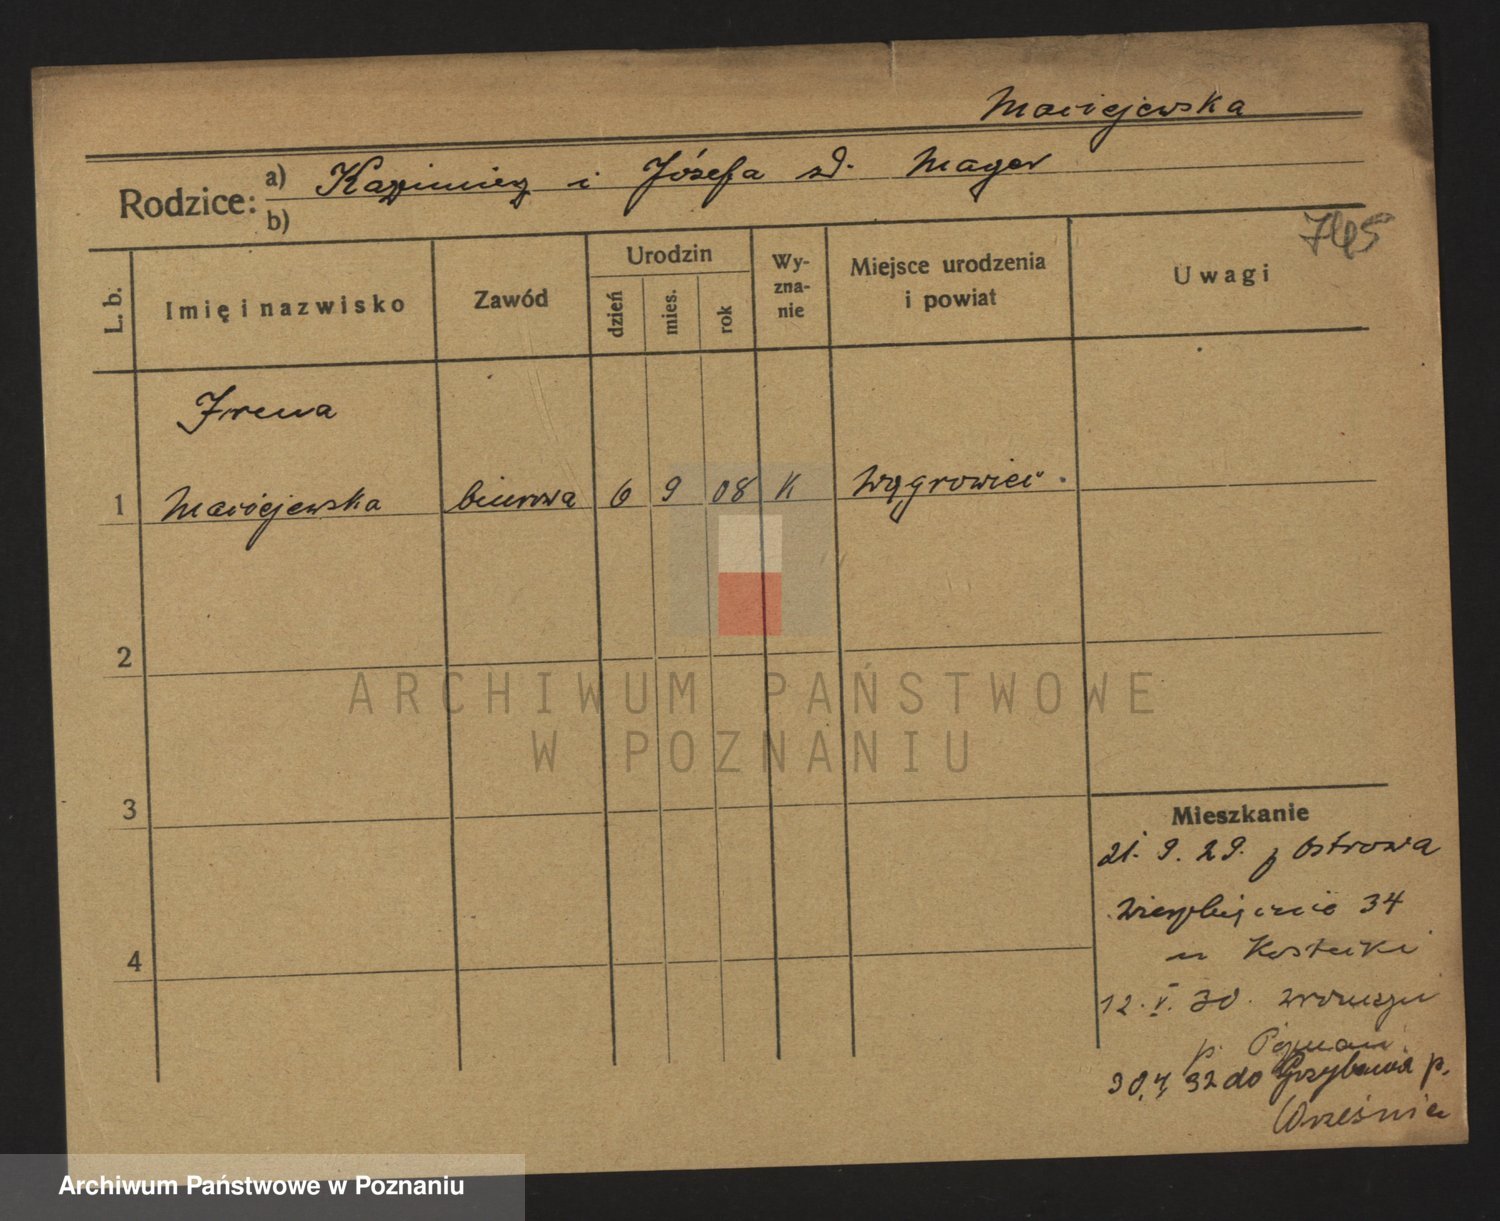 Maciejewska
Rodzice: a) Kazimierz i Józefa zd. Mager
b)
745
L. b. Imię i nazwisko Zawód Urodzin dzień mies. rok Wy-zna-nie Miejsce urodzenia i powiat Uwagi
Irena
1 Maciejewska biurowa 6 9 08 K Wągrowiec
2
3
4
Mieszkanie
21. 9. 29. z Ostrowa
Wierzbięcice 34
u Kostecki
12. V. 30.
p. Poznań
30.4.32 do Grzybowa p.
Września
ARCHIWUM PAŃSTWOWE
W POZNANIU
Archiwum Państwowe w Poznaniu